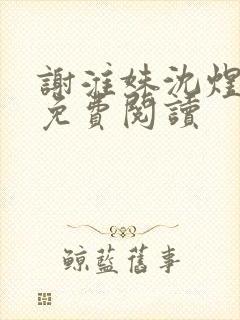 謝漼姝沈煌
免費閱讀
鯨藍舊事